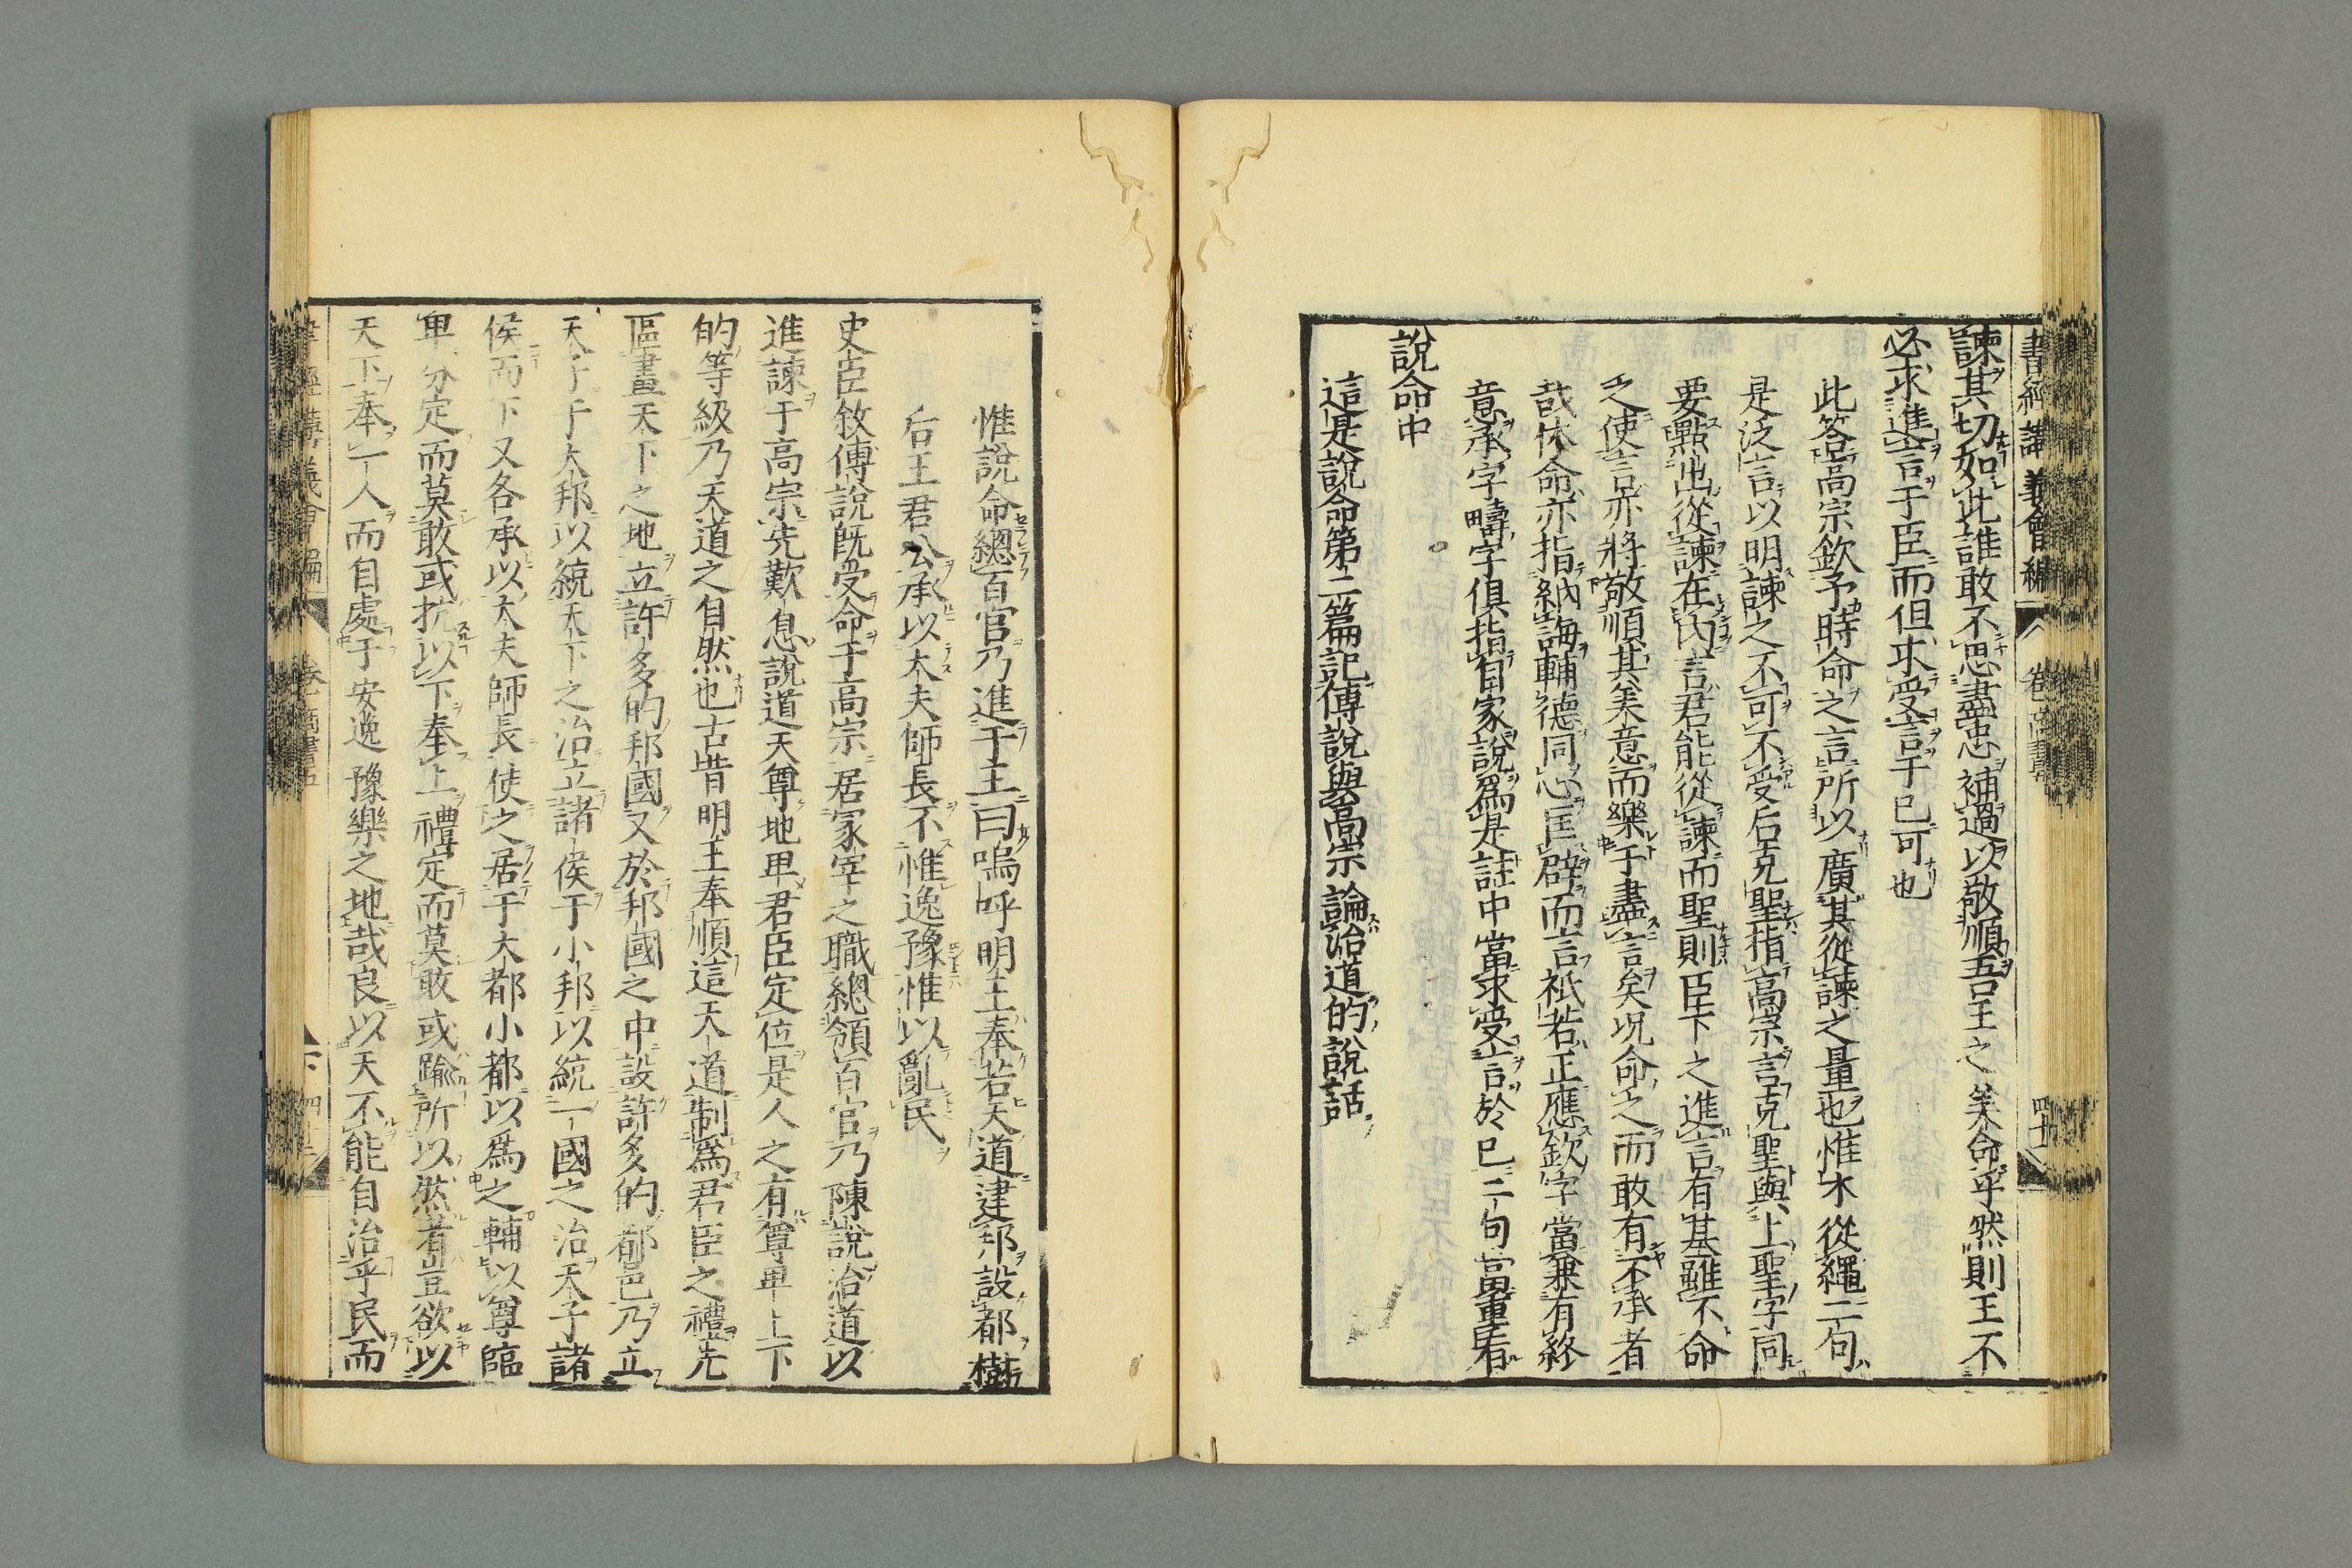 書經講義會編 卷 商書 四十
諫其切如此誰敢不思盡忠補過以敬順吾王之美命乎然則王不
必求進言于臣而但求受言于已可也
此答高宗欽予時命之言所以廣其從諫之量也惟木從繩二句
是泛言以明諫之不可不受后克聖指高宗言克聖與上聖字同
要點出從諫在内言君能從諫而聖則臣下之進言有甚雖不命
之使言亦將敬順其美意而樂于盡言矣况命之而敢有不承者
哉休命亦指納誨輔德同心匡辟而言祇若正應欽字當兼有終
意承字疇字俱指自家說爲是註中當求受言於已二句當重看
說命中
這是說命第二篇記傅說與高宗論治道的說話
惟說命總百官乃進于王曰嗚呼明王奉若天道建邦設都樹
后王君公承以大夫師長不惟逸豫惟以亂民
史臣敘傅說旣受命于高宗居冢宰之職總領百官乃陳說治道以
進諫于高宗先歎息說道天尊地卑君臣定位是人之有尊卑上下
的等級乃天道之自然也古昔明王奉順這天道制爲君臣之禮先
區畫天下之地立許多的邦國又於邦國之中設許多的都邑乃立
天子于大邦以統天下之治立諸侯于小邦以統一國之治天子諸
侯而下又各承以大夫師長使之居于大都小都以爲之輔以尊臨
卑分定而莫敢或抗以下奉上禮定而莫敢或踰所以然者豈欲以
天下奉一人而自處于安逸豫樂之地哉良以天不能自治乎民而
書經講義會編 卷 商書 四十